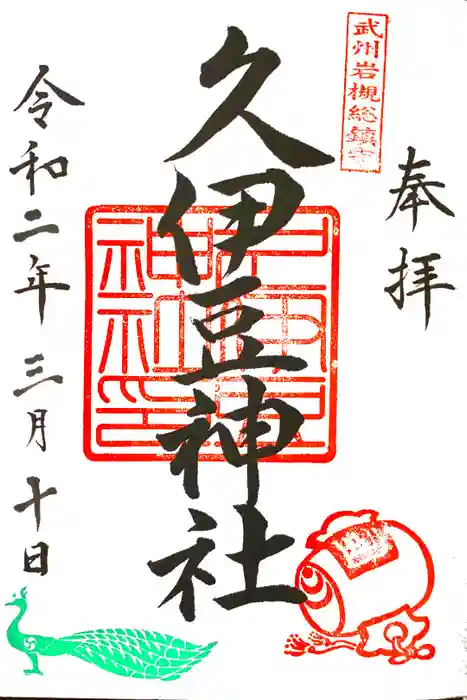 武州岩槻総鎮守
奉拝
久伊豆神社
令和二年三月十日